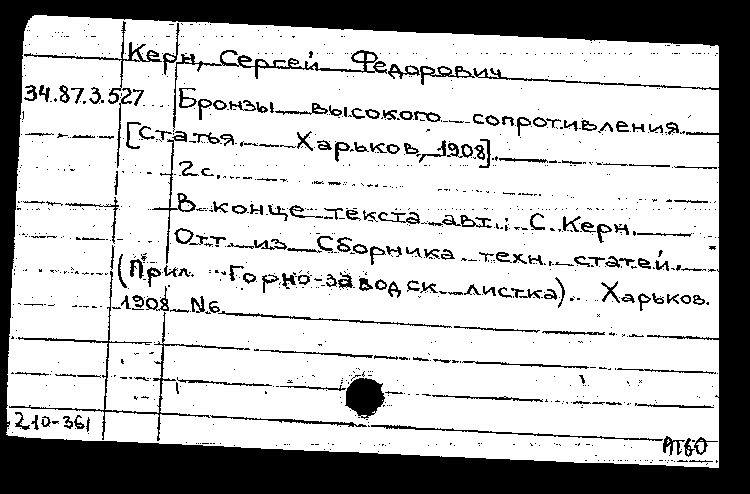 Керн, Сергей Федорович
34.87.3.527 Бронзы высокого сопротивления.
[Статья. Харьков, 1908].
2 с.
В конце текста авт.: С. Керн.
Отт. из Сборника техн. статей.
(Прил. Горно-заводск. листка). Харьков.
1908 №6.
210-361